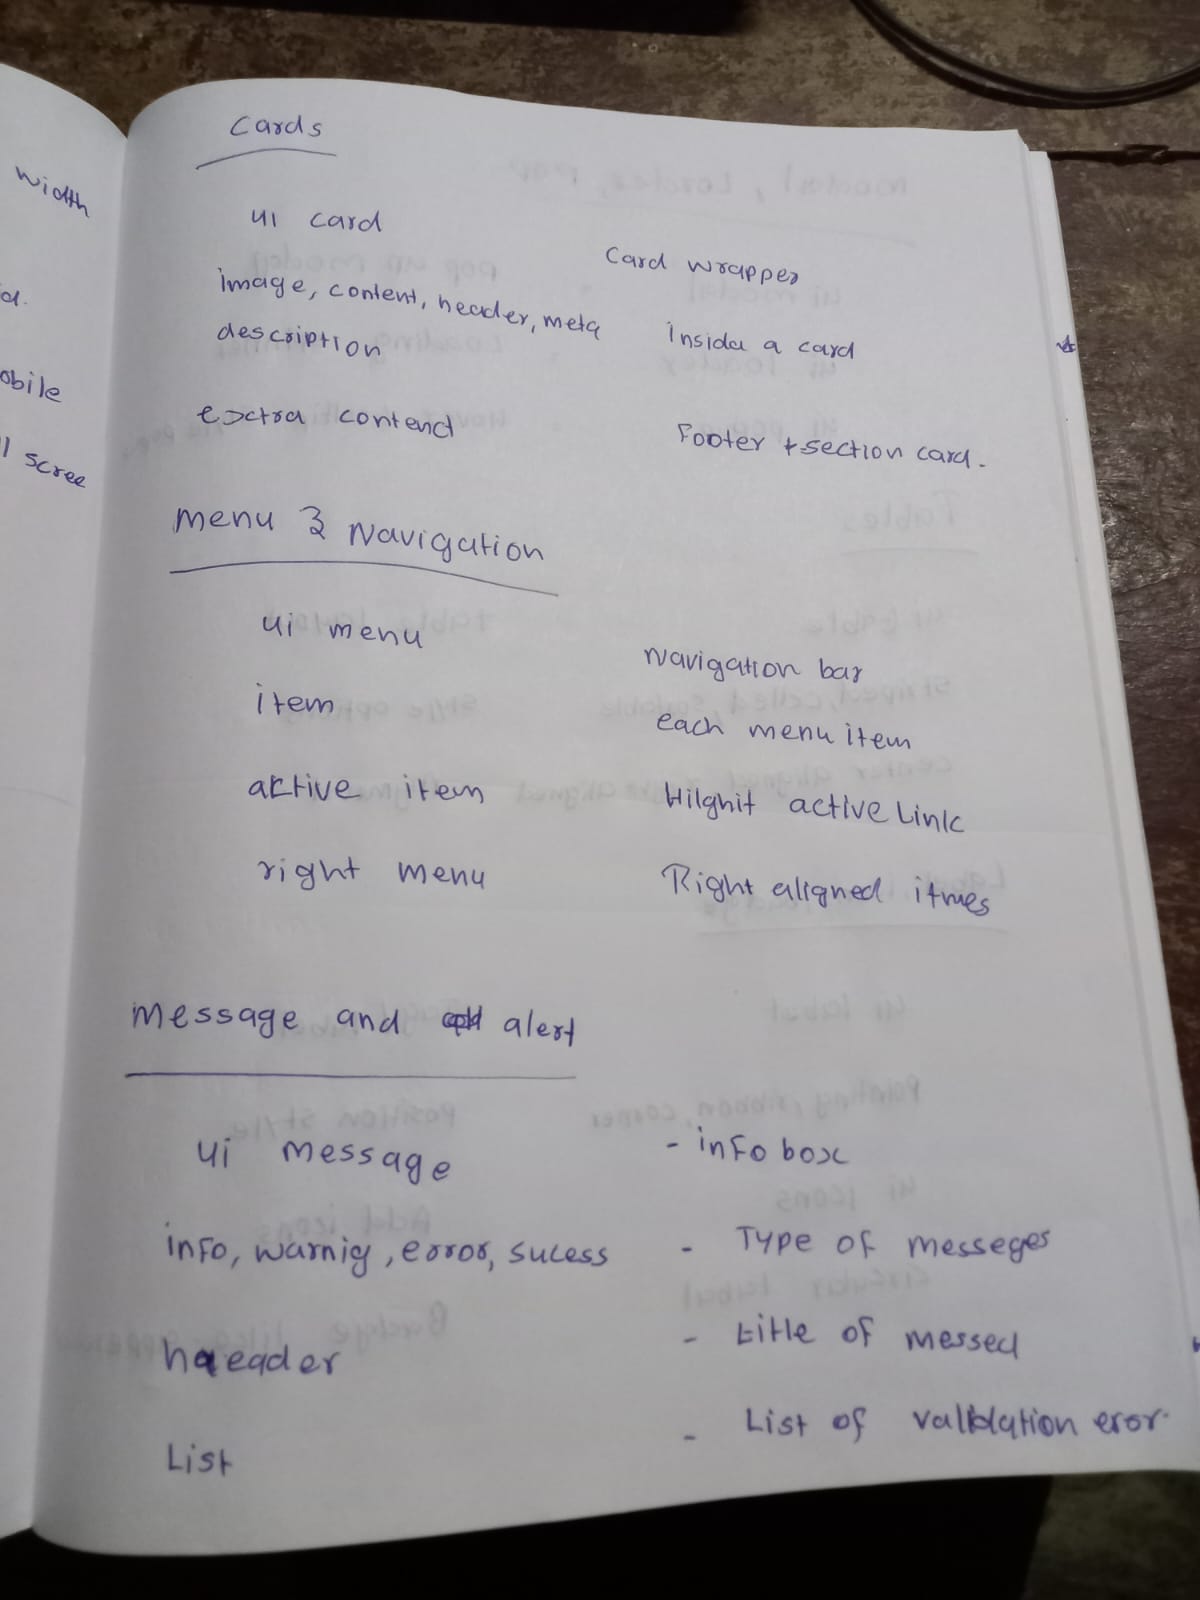 width
d.
obile
ll scree
Cards
ui card
Card wrapper
image, content, header, meta
description
Insida a card
extra contend
Footer + section card.
menu & Navigation
ui menu
Navigation bar
item
each menu item
active item
Hilghit active Link
right menu
Right aligned itmes
message and alert
ui message
- info box
info, warnig, error, sucess
- Type of messeges
haeader
- title of messed
List
- List of validation eror.